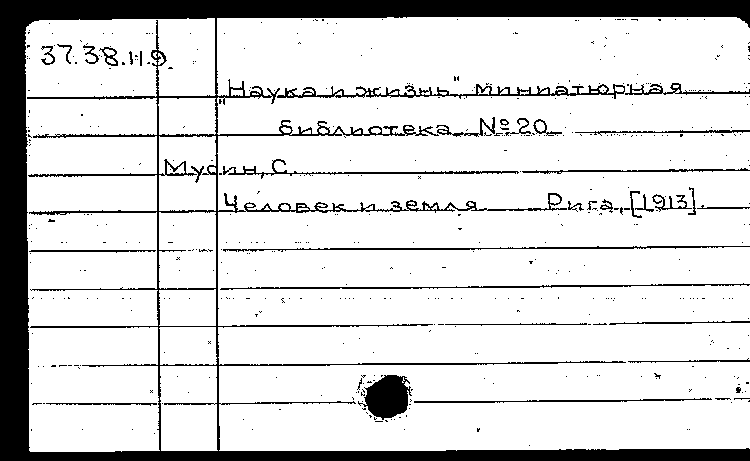 37.38.11.9.
„Наука и жизнь" миниатюрная
библиотека №20
Мусин, С.
Человек и земля Рига, [1913].